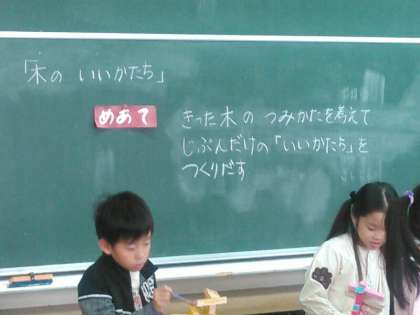 「木の いいかたち」
めあて
きった木の つみかたを考えて
じぶんだけの「いいかたち」を
つくりだす